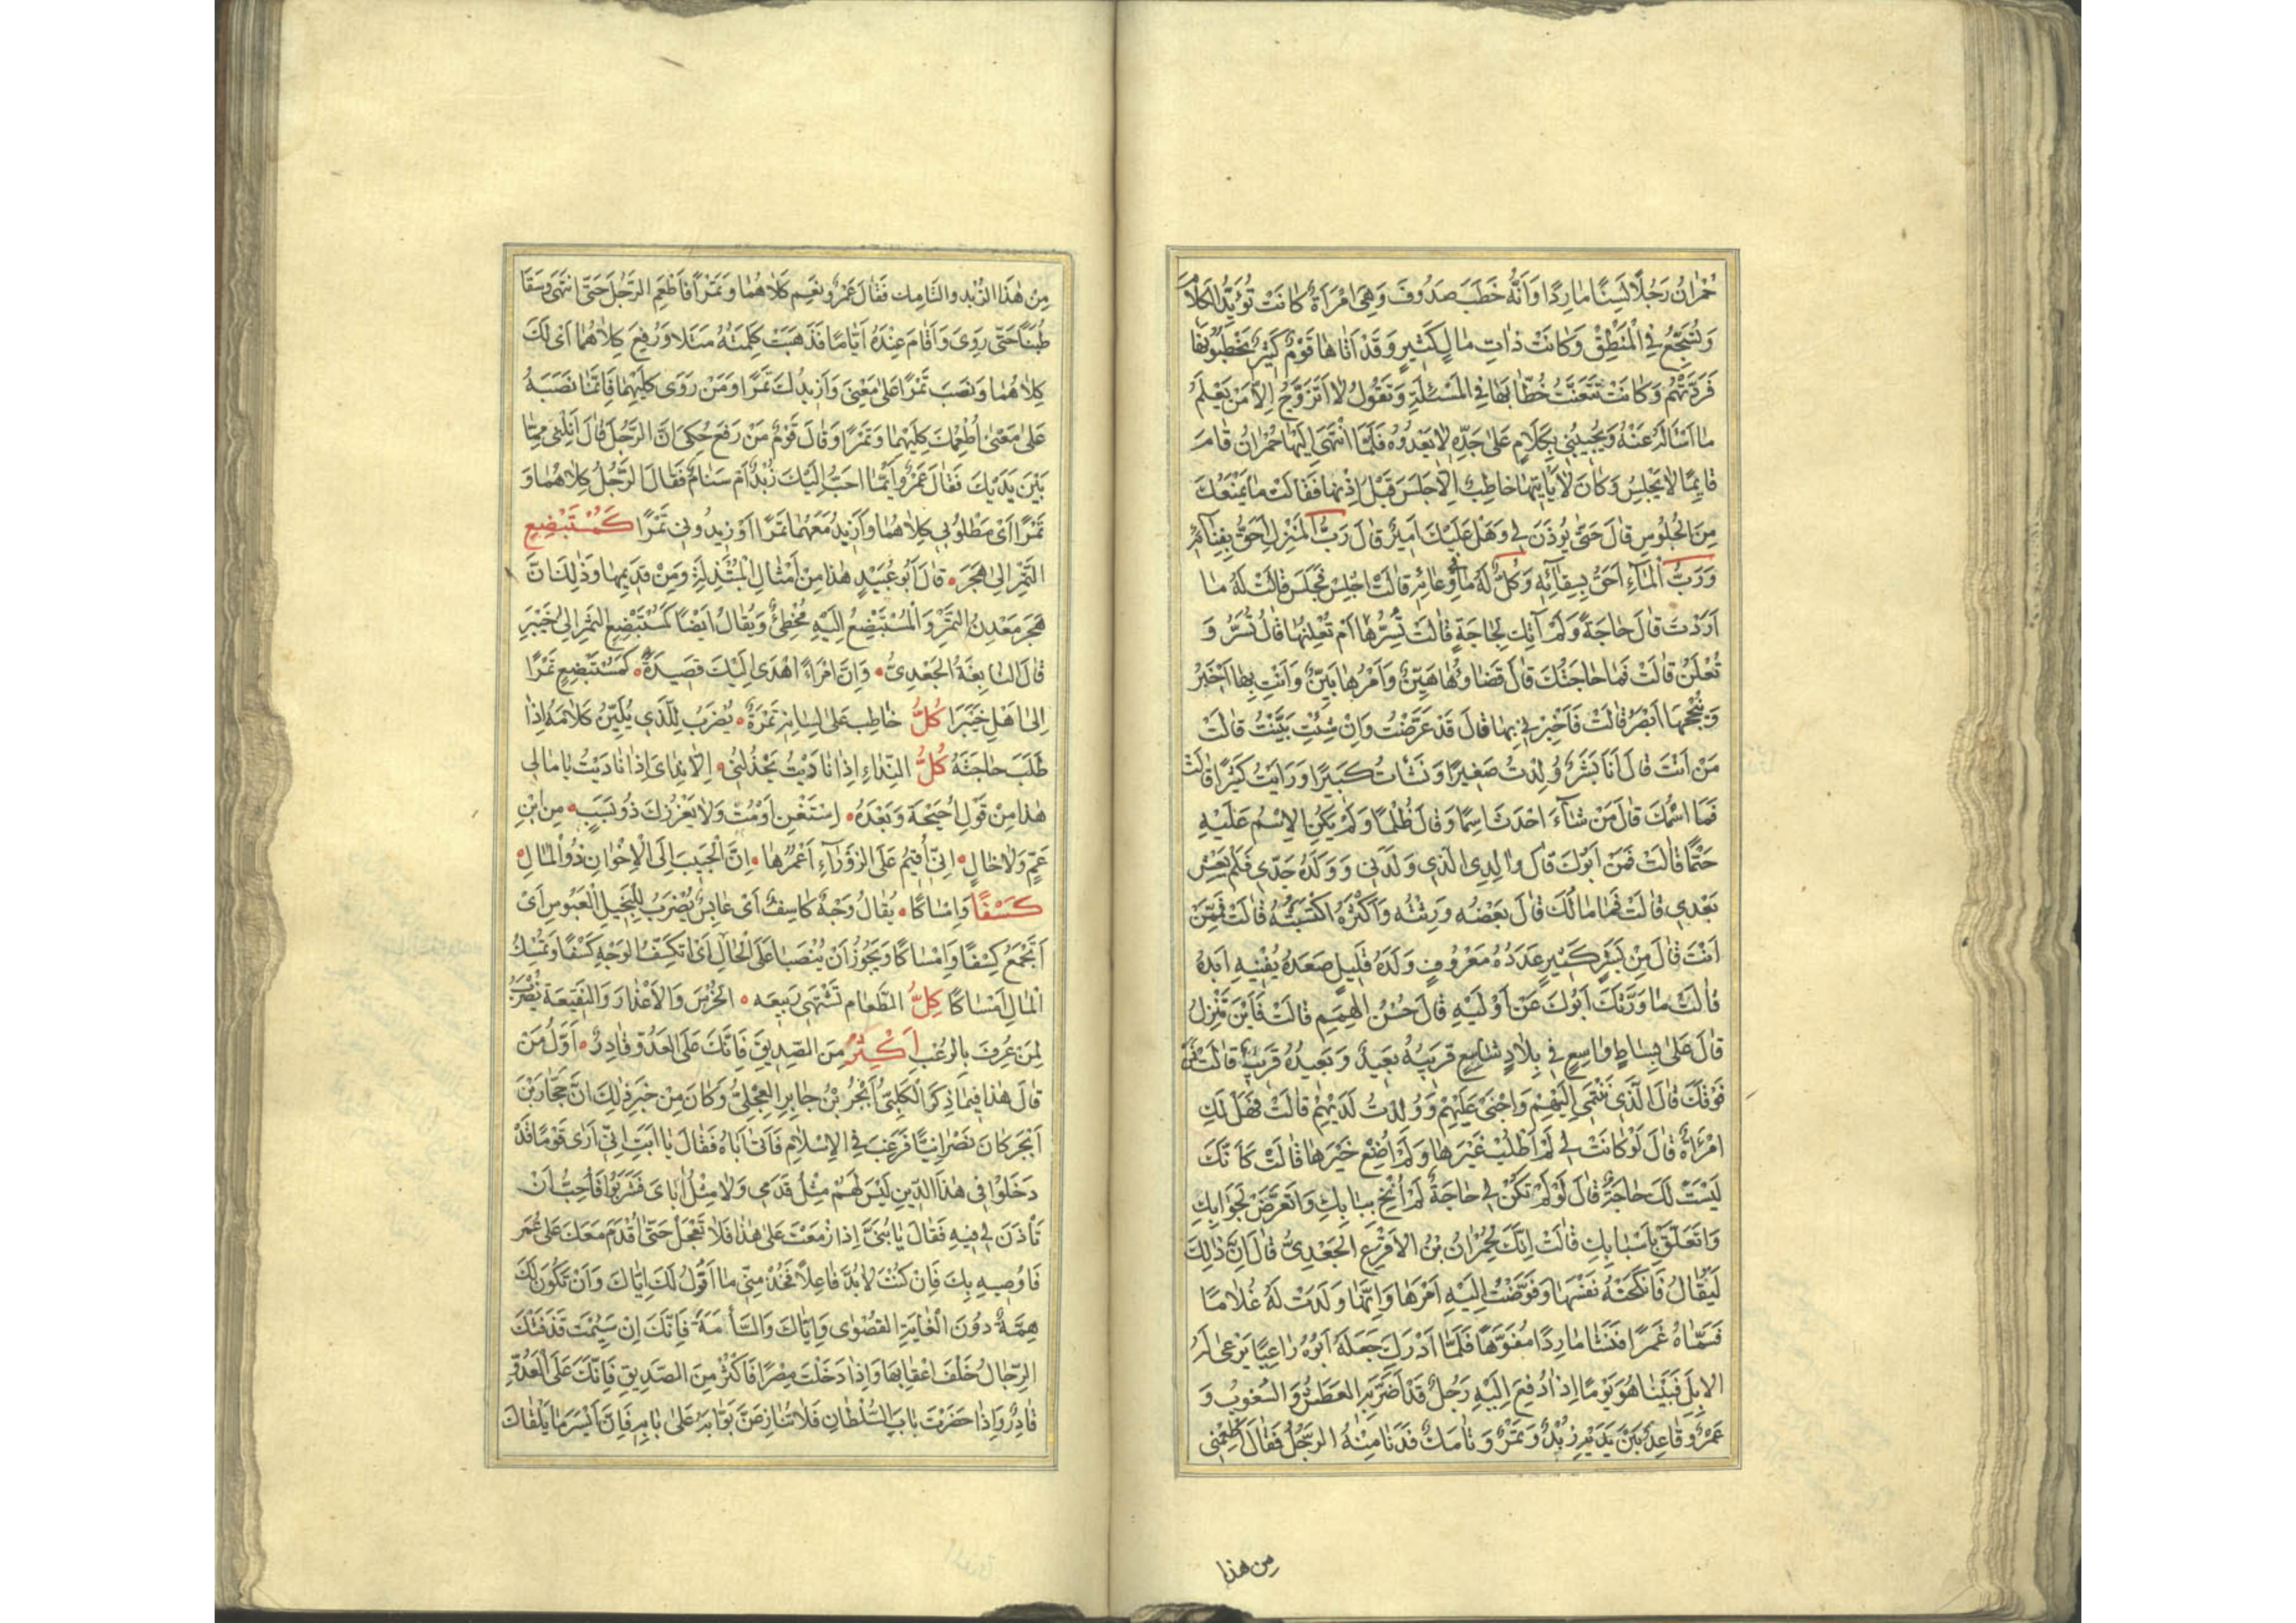 حُمْرَانُ رَجُلًا لَسِنًا مَارِدًا وَاَنَّهُ خَطَبَ صَدُوفَ وَهِيَ امْرَاَةٌ كَانَتْ تُؤَيِّدُ الكَلَامَ
وَتُسَجِّعُ فِي الْمَنْطِقِ وَكَانَتْ ذَاتِ مَالٍ كَثِيرٍ وَقَدْ اَتَاهَا قَوْمٌ كَثِيرٌ يَخْطُبُونَهَا
فَرَدَّتْهُمْ وَكَانَتْ تَتَعَنَّتُ خُطَّابَهَا فِي المَسْئَلَةِ وَتَقُولُ لَا اَتَزَوَّجُ اِلَّا مَنْ يَعْلَمُ
مَا اَسْاَلُهُ عَنْهُ وَيُجِيبُنِي بِكَلَامٍ عَلَى حَدِّهِ لَا يَعْدُوهُ فَلَمَّا انْتَهَى اِلَيْهَا حُمْرَانُ قَامَ
قَايِمًا لَا يَجْلِسُ وَكَانَ لَا يَأْتِيهَا خَاطِبٌ اِلَّا جَلَسَ قَبْلَ اِذْنِهَا فَقَالَتْ مَا يَمْنَعُكَ
مِنَ الْجُلُوسِ قَالَ حَتَّى يُوذَنَ لِي وَهَلْ عَلَيْكَ اَمِيرٌ قَالَ رَبُّ المَنْزِلِ اَحَقُّ بِفِنَآئِهِ
وَرَبُّ الْمَآءِ اَحَقُّ بِسِقَائِهِ وَكُلٌّ لَهُ مَا فِي وِعَائِهِ قَالَتْ اجْلِسْ فَجَلَسَ قَالَتْ لَهُ مَا
اَرَدْتَ قَالَ حَاجَةً وَلَمْ آتِكِ لِحَاجَةٍ قَالَتْ تُسِرُّهَا اَمْ تُعْلِنُهَا قَالَ تُسَرُّ وَ
تُعْلَنُ قَالَتْ فَمَا حَاجَتُكَ قَالَ قَضَاؤُهَا هَيِّنٌ وَاَمْرُهَا بَيِّنٌ وَاَنْتِ بِهَا اَخْبَرُ
وَبِنُجْحِهَا اَبْصَرُ قَالَتْ فَاَخْبِرْنِي بِهَا قَالَ قَدْ عَرَّضْتُ وَاِنْ شِئْتِ بَيَّنْتُ قَالَتْ
مَنْ اَنْتَ قَالَ اَنَا بَشَرٌ وُلِدْتُ صَغِيرًا وَنَشَأْتُ كَبِيرًا وَرَاَيْتُ كَثِيرًا قَالَتْ
فَمَا اسْمُكَ قَالَ مَنْ شَآءَ اَحْدَثَ اسِمًا وَقَالَ ظُلْمًا وَلَمْ يَكُنِ الاِسْمُ عَلَيْهِ
حَتْمًا قَالَتْ فَمَنْ اَبُوكَ قَالَ وَالِدِي الَّذِي وَلَدَنِي وَوَلَدَهُ جَدِّي فَلَمْ يَعِشْ
بَعْدِي قَالَتْ فَمَا مَالُكَ قَالَ بَعْضُهُ وَرِثْتُهُ وَاَكْثَرُهُ اكْتَسَبْتُهُ قَالَتْ فَمِمَّنْ
اَنْتَ قَالَ مِنْ بَشَرٍ كَثِيرٍ عَدَدُهُ مَعْرُوفٍ وَلَدُهُ قَلِيلٍ صَعَدُهُ يُفْنِيهِ اَبَدُهُ
قَالَتْ مَا وَرَّثَكَ اَبُوكَ عَنْ اَوَّلَيْهِ قَالَ حُسْنُ الْهِمَمِ قَالَتْ فَاَيْنَ تَنْزِلُ
قَالَ عَلَى بِسَاطٍ وَاسِعٍ فِي بِلَادٍ شَاسِعٍ قَرِيبُهُ بَعِيدٌ وَبَعِيدُهُ قَرِيبٌ قَالَتْ فَمَنْ
قَوْمُكَ قَالَ الَّذِي نَنْتَمِي اِلَيْهِمْ وَاجْنَي عَلَيْهِمْ وَوُلِدْتُ لَدَيْهِمْ قَالَتْ فَهَلْ لَكَ
امْرَأَةٌ قَالَ لَوْ كَانَتْ لِي لَمْ اَطْلُبْ غَيْرَهَا وَلَمْ اُضِعْ خَيْرَهَا قَالَتْ كَاَنَّكَ
لَيْسَتْ لَكَ حَاجَةٌ قَالَ لَوْ لَمْ تَكُنْ لِي حَاجَةٌ لَمْ اُنِخْ بِبَابِكِ وَاَتَعَرَّضْ لِجَوَابِكِ
وَاَتَعَلَّقْ بِاَسْبَابِكِ قَالَتْ اِنَّكَ لَحُمْرَانُ بْنُ الاَقْرَعِ الجَعْدِيُّ قَالَ اِنَّ ذٰلِكَ
لَيُقَالُ فَاَنْكَحَتْهُ نَفْسَهَا وَفَوَّضَتْ اِلَيْهِ اَمْرَهَا وَاِنَّهَا وَلَدَتْ لَهُ غُلَامًا
فَسَمَّاهُ عَمْرًا فَنَشَا مَارِدًا مُفَوَّهًا فَلَمَّا اَدْرَكَ جَعَلَهُ اَبُوهُ رَاعِيًا يَرْعَى لَهُ
الاِبِلَ فَبَيْنَا هُوَ يَوْمًا اِذْ اُدْفِعَ اِلَيْهِ رَجُلٌ قَدْ اَضَرَّ بِهِ العَطَشُ وَالسُّغُوبُ وَ
عَمْرٌو قَاعِدٌ بَيْنَ يَدَيْهِ زُبْدٌ وَتَمْرٌ وَتَامَكٌ فَدَنَا مِنْهُ الرَّجُلُ فَقَالَ اَطْعِمْنِي
مِن هذا
مِنْ هٰذَا الزُّبْدِ وَالتَّامِكِ فَقَالَ عَمْرٌو نَعَمْ كَلَاهُمَا وَتَمْرًا فَاَطْعَمَ الرَّجُلَ حَتَّى انْتَهَى وَسَقَا
لَبَنًا حَتَّى رَوِيَ وَاَقَامَ عِنْدَهُ اَيَّامًا فَذَهَبَتْ كَلِمَتُهُ مَثَلًا وَرُفِعَ كِلَاهُمَا اَيْ لَكَ
كِلَاهُمَا وَنَصَبَ تَمْرًا عَلَى مَعْنَى وَاَزِيدُكَ تَمْرًا وَمَنْ رَوَى كِلَيْهِمَا فَاِنَّمَا نَصَبَهُ
عَلَى مَعْنَى اُطْعِمُكَ كِلَيْهِمَا وَتَمْرًا وَقَالَ قَوْمٌ مَنْ رَفَعَ حَكَى اَنَّ الرَّجُلَ قَالَ اَنِلْنِي مِمَّا
بَيْنَ يَدَيْكَ فَقَالَ عَمْرٌو اَيُّمَا اَحَبُّ اِلَيْكَ زُبْدٌ اَمْ سَنَامٌ فَقَالَ الرَّجُلُ كِلَاهُمَا وَ
تَمْرًا اَيْ مَطْلُوبِي كِلَاهُمَا وَاَزِيدُ مَعَهُمَا تَمْرًا اَوْ زِيدُونِي تَمْرًا كَمُسْتَبْضِعِ
التَّمْرِ اِلَى هَجَرَ قَالَ اَبُو عُبَيْدٍ هٰذَا مِنْ اَمْثَالِ المُبْتَذَلَةِ وَمِنْ قَدِيمِهَا وَذٰلِكَ اَنَّ
هَجَرَ مَعْدِنُ التَّمْرِ وَالْمُسْتَبْضِعُ اِلَيْهِ مُخْطِئٌ وَيُقَالُ اَيْضًا كَمُسْتَبْضِعِ التَّمْرِ اِلَى خَيْبَرَ
قَالَ النَّابِغَةُ الجَعْدِيُّ وَاِنَّ امْرَاءً اَهْدَى اِلَيْكَ قَصِيدَةً كَمُسْتَبْضِعٍ تَمْرًا
اِلَى اَهْلِ خَيْبَرَا كُلُّ خَاطِبٍ عَلَى لِسَانِهِ تَمْرَةٌ يُضْرَبُ لِلَّذِي يُلَيِّنُ كَلَامَهُ اِذَا
طَلَبَ حَاجَتَهُ كُلُّ النِّدَاءِ اِذَا نَادَيْتُ يَخْذُلُنِي اِلَّا نِدَاىَ اِذَا نَادَيْتُ يَا مَالِي
هٰذَا مِنْ قَوْلِ اُحَيْحَةَ وَبَعْدَهُ اِسْتَغْنِ اَوْ مُتْ وَلَا يَغْرُرْكَ ذُو نَسَبٍ مِنِ ابْنِ
عَمٍّ وَلَا خَالٍ اِنِّي اُقِيمُ عَلَى الزَّوْرَآءِ اَعْمُرُهَا اِنَّ الْحَبِيبَ اِلَى الْاِخْوَانِ ذُو الْمَالِ
كَسْفًا وَاِمْسَاكًا يُقَالُ وَجْهٌ كَاسِفٌ اَيْ عَابِسٌ يُضْرَبُ لِلْبَخِيلِ الْعَبُوسِ اَيْ
اَتَجْمَعُ كِسْفًا وَاِمْسَاكًا وَيَجُوزُ اَنْ يُنْصَبَا عَلَى الْحَالِ اَيْ اَتَكْسِفُ الوَجْهِ كَسْفًا وَتُمْسِكُ
الْمَالِ اِمْسَاكًا كُلَّ الطَّعَامِ تَشْتَهِي رَبِيعَه الخُرْسَ وَالاَعْذَارَ وَالنَّقِيعَة يُضْرَبُ
لِمَنْ عُرِفَ بِالرُّغْبِ اَكْثِرْ مِنَ الصَّدِيقِ فَاِنَّكَ عَلَى العَدُوِّ قَادِرٌ اَوَّلُ مَنْ
قَالَ هٰذَا فِيمَا ذَكَرَ الْكَلْبِيُّ اَبْجُرُ بْنُ جَابِرِ العِجْلِيُّ وَكَانَ مِنْ خَبَرِ ذٰلِكَ اَنَّ حَجَّارَ بْنَ
اَبْجَرَ كَانَ نَصْرَانِيًّا فَرَغِبَ فِي الاِسْلَامِ فَاَتَى اَبَاهُ فَقَالَ يَا اَبَتِ اِنِّي اَرَى قَوْمًا قَدْ
دَخَلُوا فِي هٰذَا الدِّينِ لَيْسَ لَهُمْ مِثْلُ قَدَمِي وَلَا مِثْلُ اٰبَاىَ فَشَرُفُوا فَاُحِبُّ اَنْ
تَأْذَنَ لِي فِيهِ فَقَالَ يَا بُنَيَّ اِذَا زْمَعْتَ عَلَى هٰذَا فَلَا تَعْجَلْ حَتَّى اَقْدَمَ مَعَكَ عَلَى عُمَر
فَاُوصِيهِ بِكَ فَاِنْ كُنْتَ لَا بُدَّ فَاعِلًا فَخُذْ مِنِّي مَا اَقُولُ لَكَ اِيَّاكَ وَاَنْ تَكُونَ لَكَ
هِمَّةٌ دُونَ الْغَايَةِ القُصْوَى وَاِيَّاكَ وَالسَّأمَةَ فَاِنَّكَ اِنْ سَئِمْتَ قَذَفَتْكَ
الرِّجَالُ خَلْفَ اَعْقَابِهَا وَاِذَا دَخَلْتَ مِصْرًا فَاَكْثِرْ مِنَ الصَّدِيقِ فَاِنَّكَ عَلَى الْعَدُوِّ
قَادِرٌ وَاِذَا حَضَرْتَ بَابَ السُّلْطَانِ فَلَا تُنَازِعَنَّ بَوَّابَهُ عَلَى بَابِهِ فَاِنَّ اَيْسَرَ مَا يَلْقَاكَ